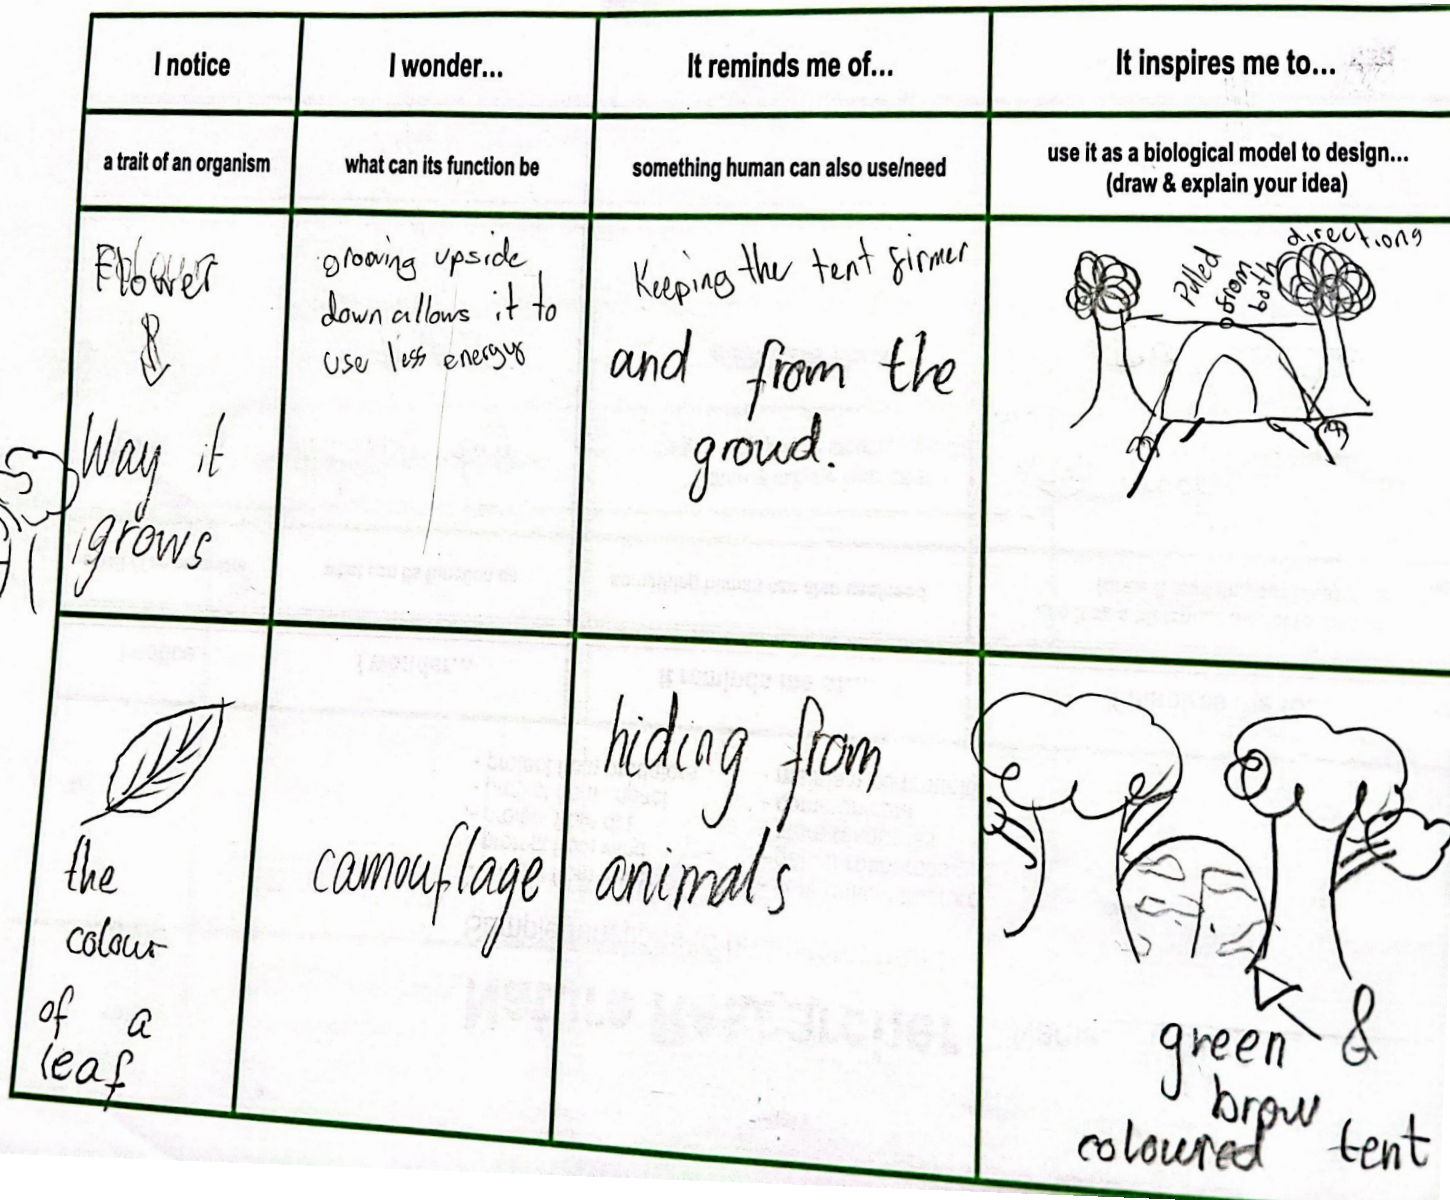 I notice
I wonder...
It reminds me of...
It inspires me to...
a trait of an organism
what can its function be
something human can also use/need
use it as a biological model to design...
(draw & explain your idea)
Flower
&
Way it
grows
growing upside
down allows it to
use less energy
Keeping the tent firmer
and from the
growd.
Pulled
from
both
directions
the
colour
of a
leaf
camouflage
hiding from
animals
green &
brow
coloured tent